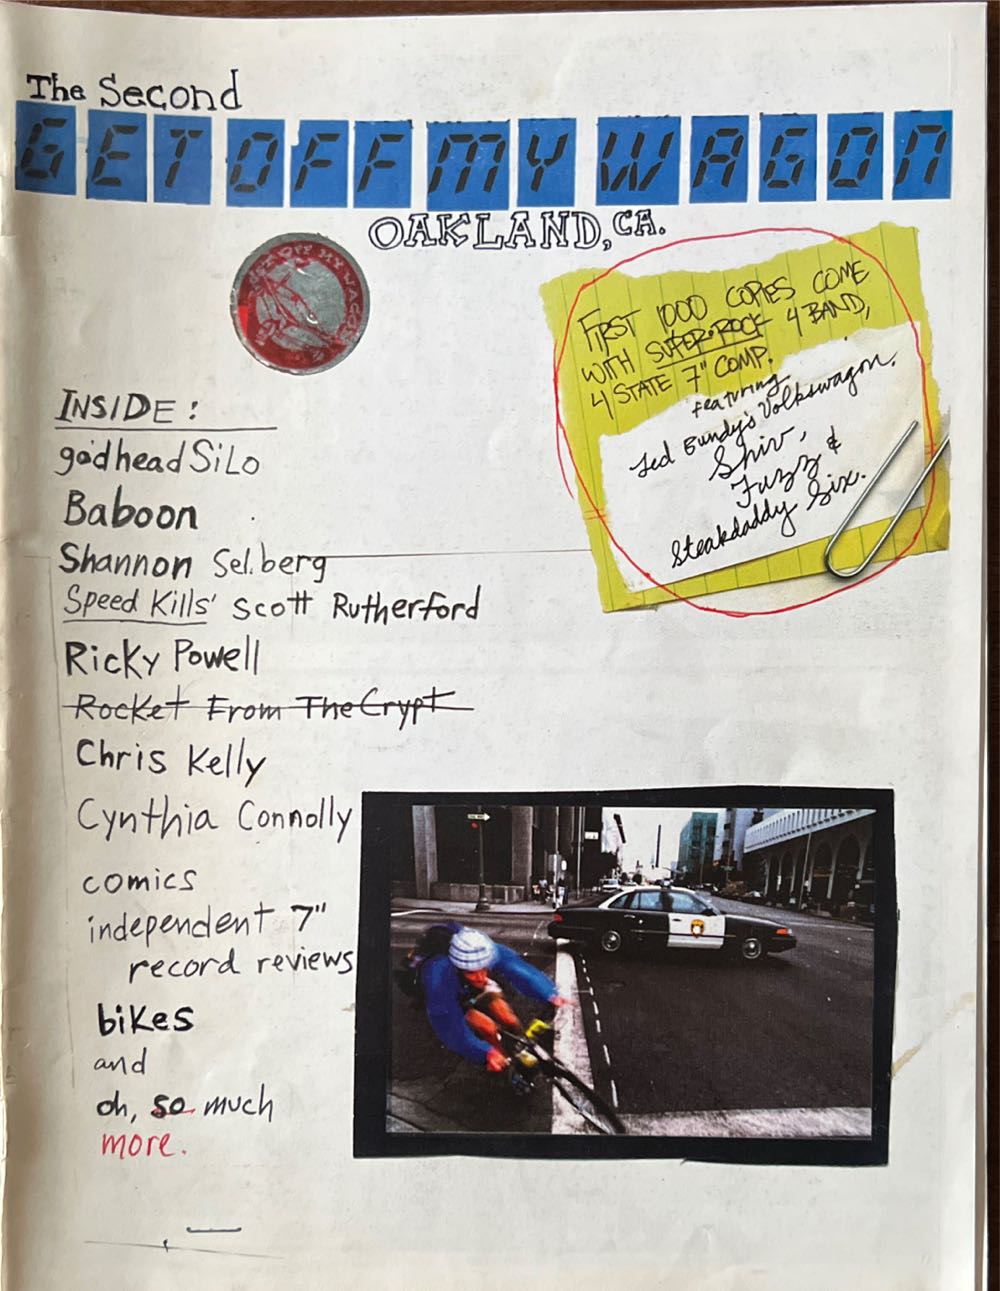 The Second
GET OFF MY WAGON
OAKLAND, CA.
GET OFF MY WAGON
FIRST 1000 COPIES COME
WITH SUPER-ROCK 4 BAND,
4 STATE 7" COMP.
featuring
Ted Bundy's Volkswagon,
Shiv,
Fuzz &
Steakdaddy Six.
INSIDE:
godheadSiLo
Baboon
Shannon Selberg
Speed Kills' Scott Rutherford
Ricky Powell
Rocket From The Crypt
Chris Kelly
Cynthia Connolly
comics
independent 7"
record reviews
bikes
and
oh, so much
more.